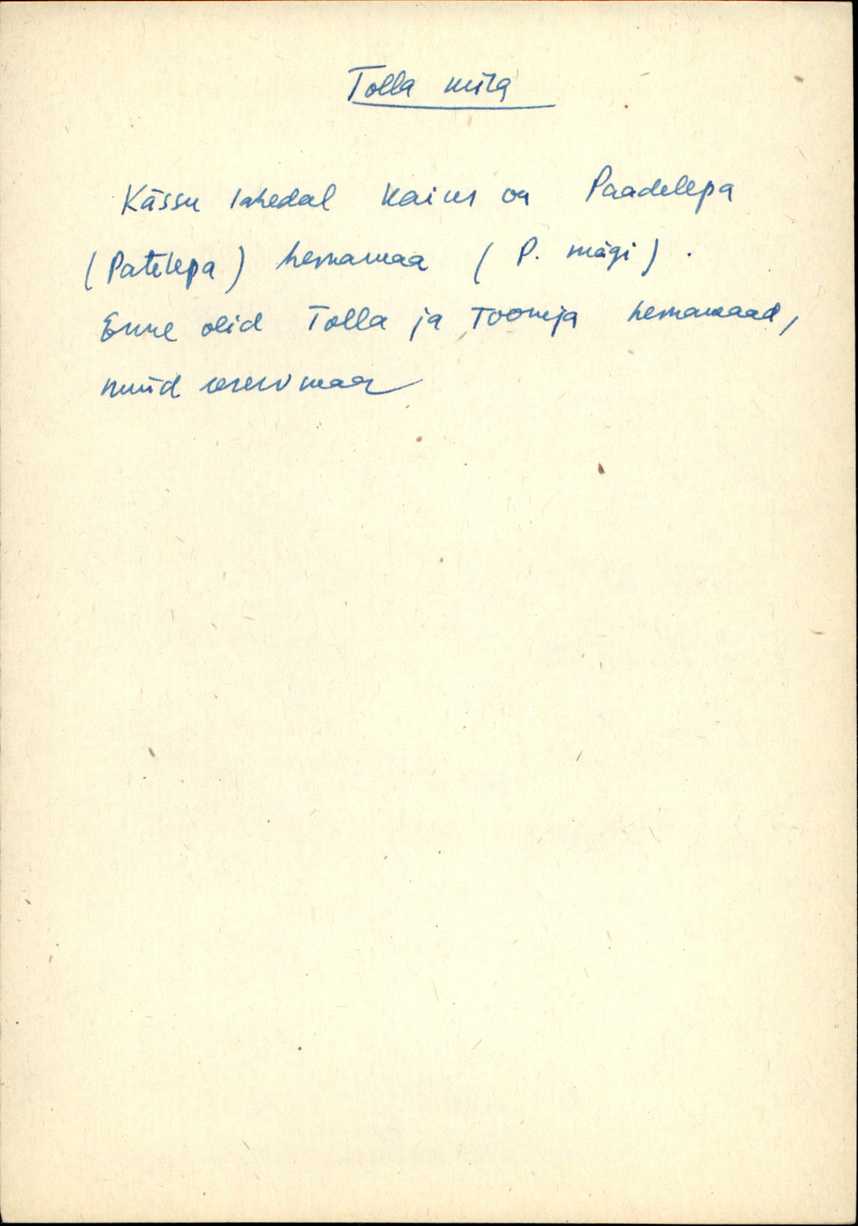 Tolla
Kässu lahedal on Paadelepa
(Patelepa) heinamaa (P. mägi).
Enne olid Tolla ja Toomja heinamaad,
nüüd reservmaa